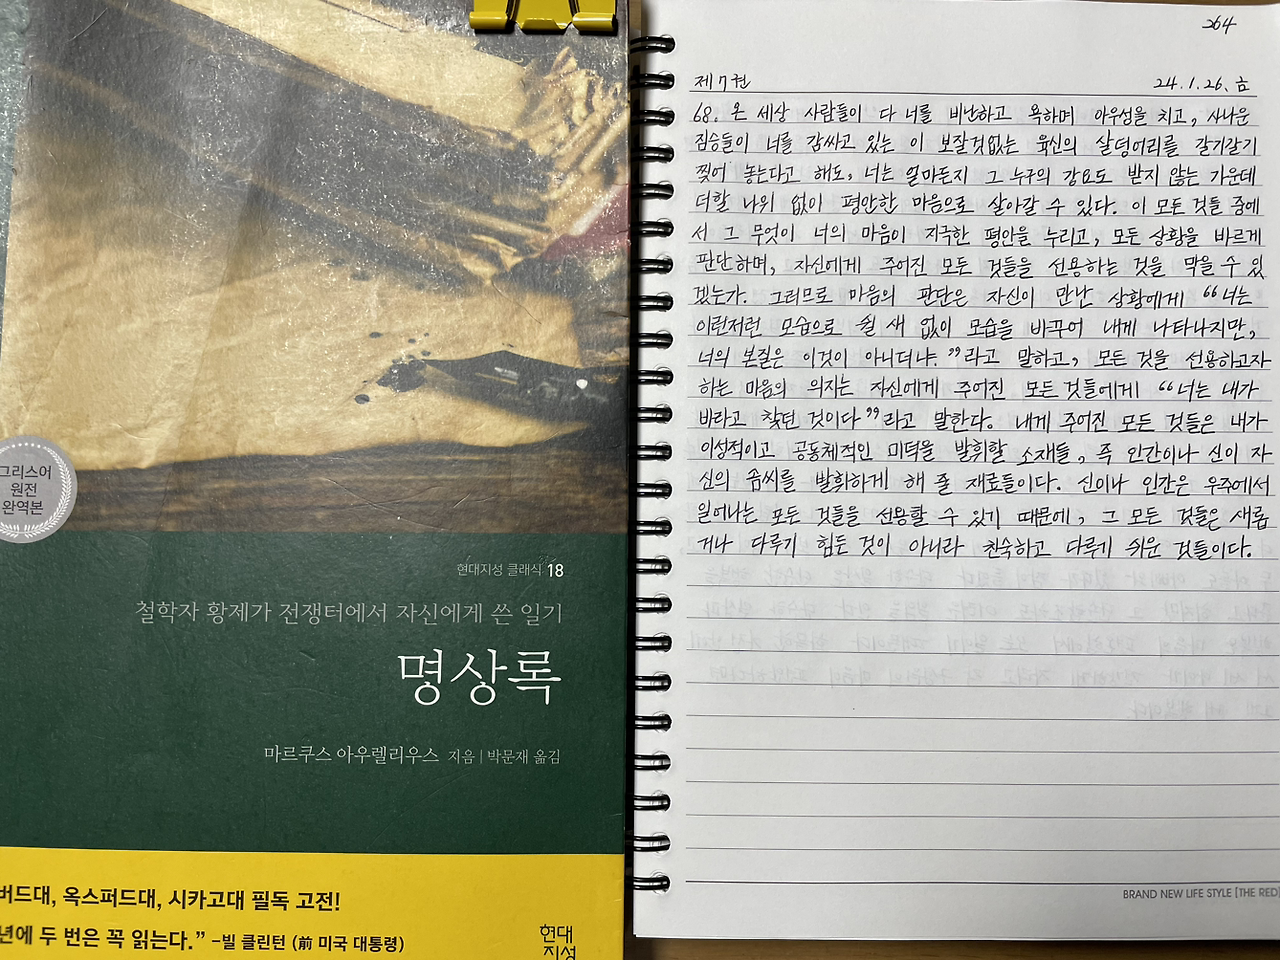 그리스어
원전
완역본
현대지성 클래식 18
철학자 황제가 전쟁터에서 자신에게 쓴 일기
명상록
마르쿠스 아우렐리우스 지음 | 박문재 옮김
버드대, 옥스퍼드대, 시카고대 필독 고전!
년에 두 번은 꼭 읽는다.” -빌 클린턴 (前 미국 대통령)
현대
지성
264
제7권 24.1.26. 금
68. 온 세상 사람들이 다 너를 비난하고 욕하며 아우성을 치고, 사나운
짐승들이 너를 감싸고 있는 이 보잘것없는 육신의 살덩어리를 갈기갈기
찢어 놓는다고 해도, 너는 얼마든지 그 누구의 강요도 받지 않는 가운데
더할 나위 없이 평안한 마음으로 살아갈 수 있다. 이 모든 것들 중에
서 그 무엇이 너의 마음이 지극한 평안을 누리고, 모든 상황을 바르게
판단하며, 자신에게 주어진 모든 것들을 선용하는 것을 막을 수 있
겠는가. 그러므로 마음의 판단은 자신이 만난 상황에게 “너는
이런저런 모습으로 쉴 새 없이 모습을 바꾸어 내게 나타나지만,
너의 본질은 이것이 아니더냐.”라고 말하고, 모든 것을 선용하고자
하는 마음의 의지는 자신에게 주어진 모든 것들에게 “너는 내가
바라고 찾던 것이다”라고 말한다. 내게 주어진 모든 것들은 내가
이성적이고 공동체적인 미덕을 발휘할 소재들, 즉 인간이나 신이 자
신의 솜씨를 발휘하게 해 줄 재료들이다. 신이나 인간은 우주에서
일어나는 모든 것들을 선용할 수 있기 때문에, 그 모든 것들은 새롭
거나 다루기 힘든 것이 아니라 친숙하고 다루기 쉬운 것들이다.
BRAND NEW LIFE STYLE [THE RED]